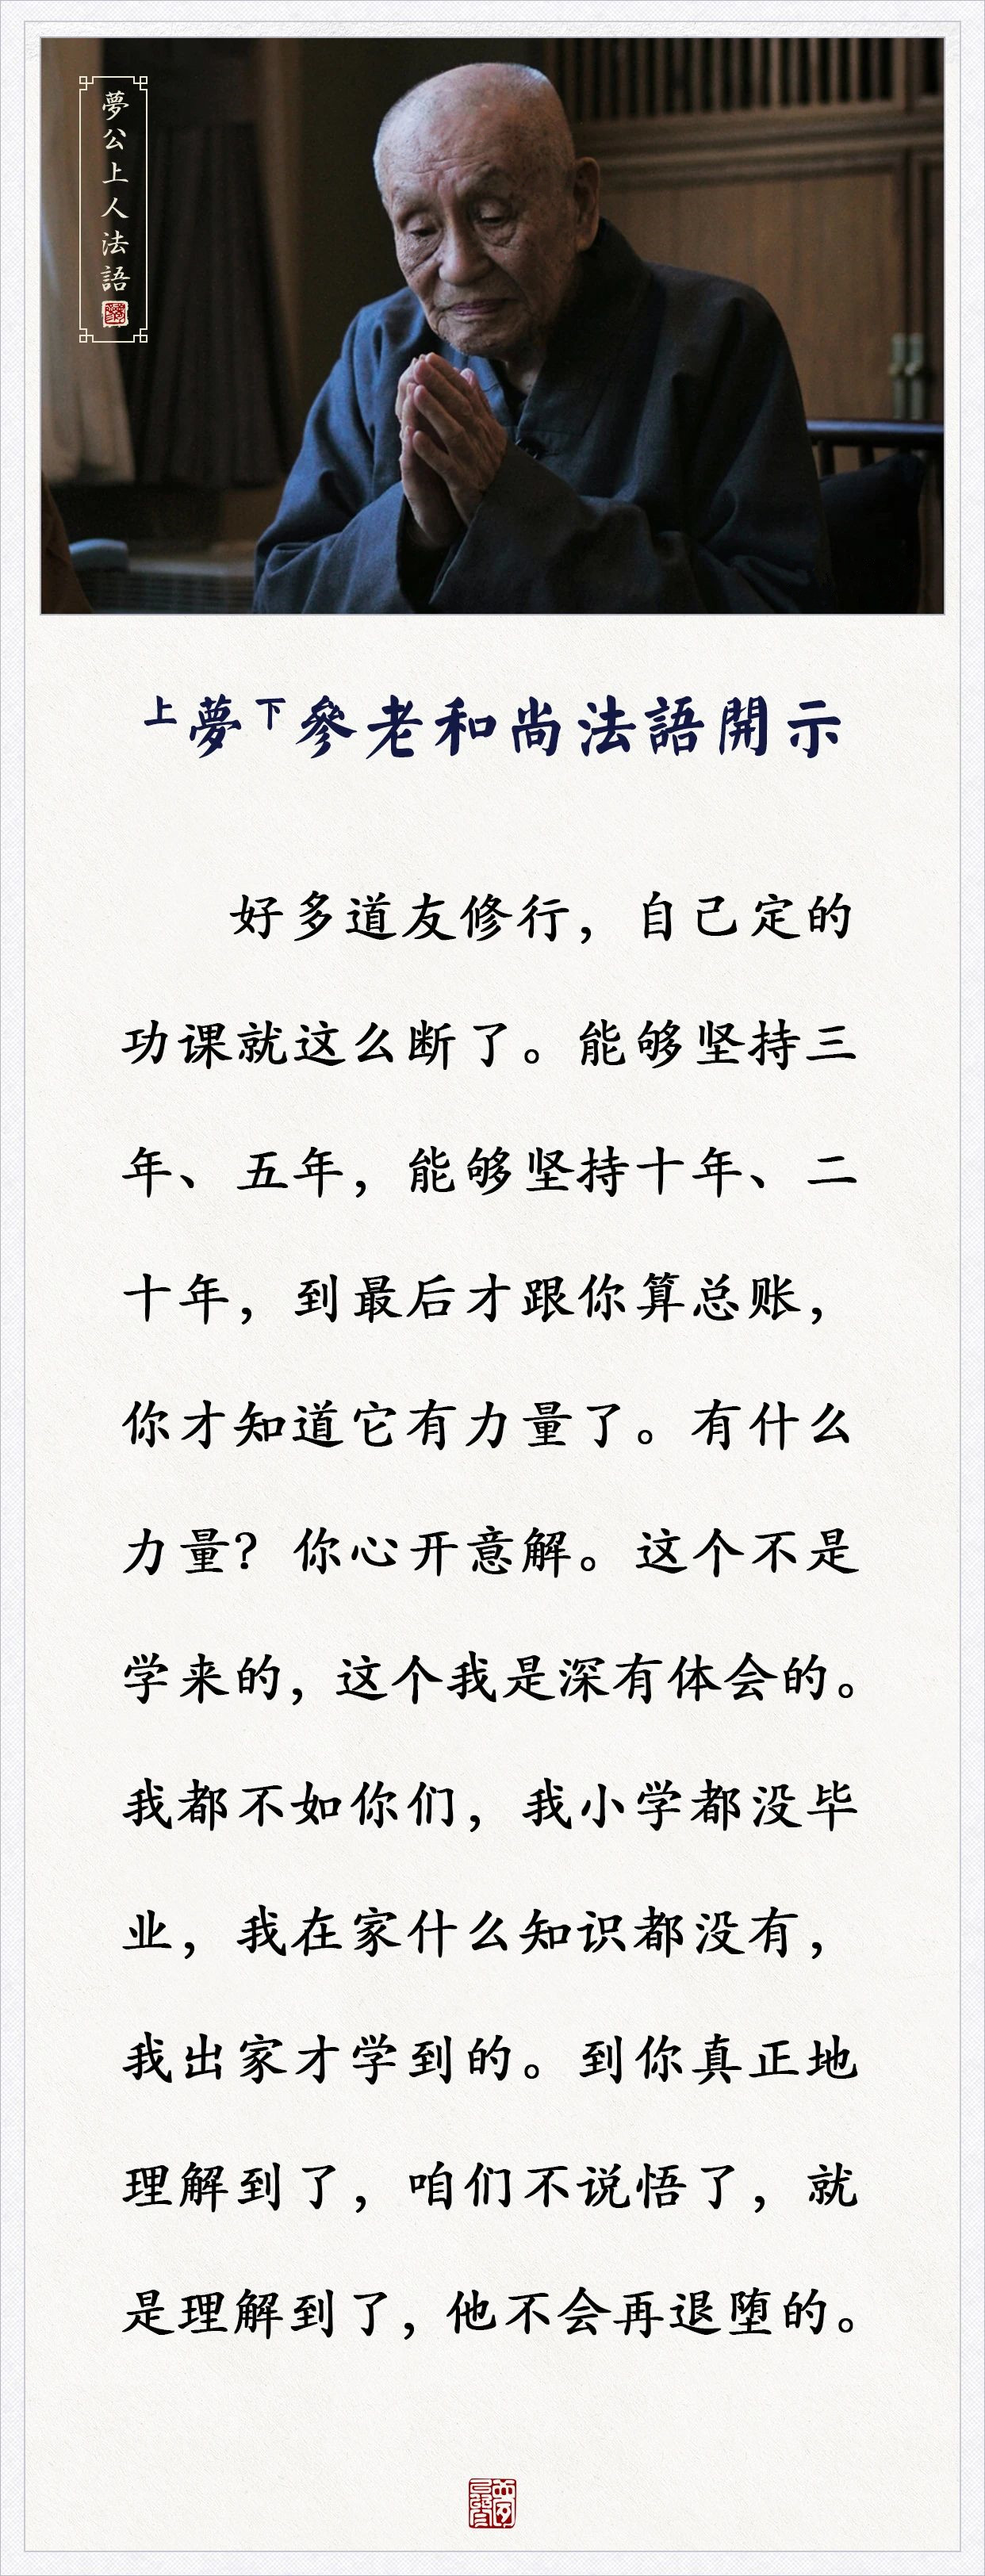 夢公上人法語
上夢下參老和尚法語開示
好多道友修行，自己定的
功课就这么断了。能够坚持三
年、五年，能够坚持十年、二
十年，到最后才跟你算总账，
你才知道它有力量了。有什么
力量？你心开意解。这个不是
学来的，这个我是深有体会的。
我都不如你们，我小学都没毕
业，我在家什么知识都没有，
我出家才学到的。到你真正地
理解到了，咱们不说悟了，就
是理解到了，他不会再退堕的。